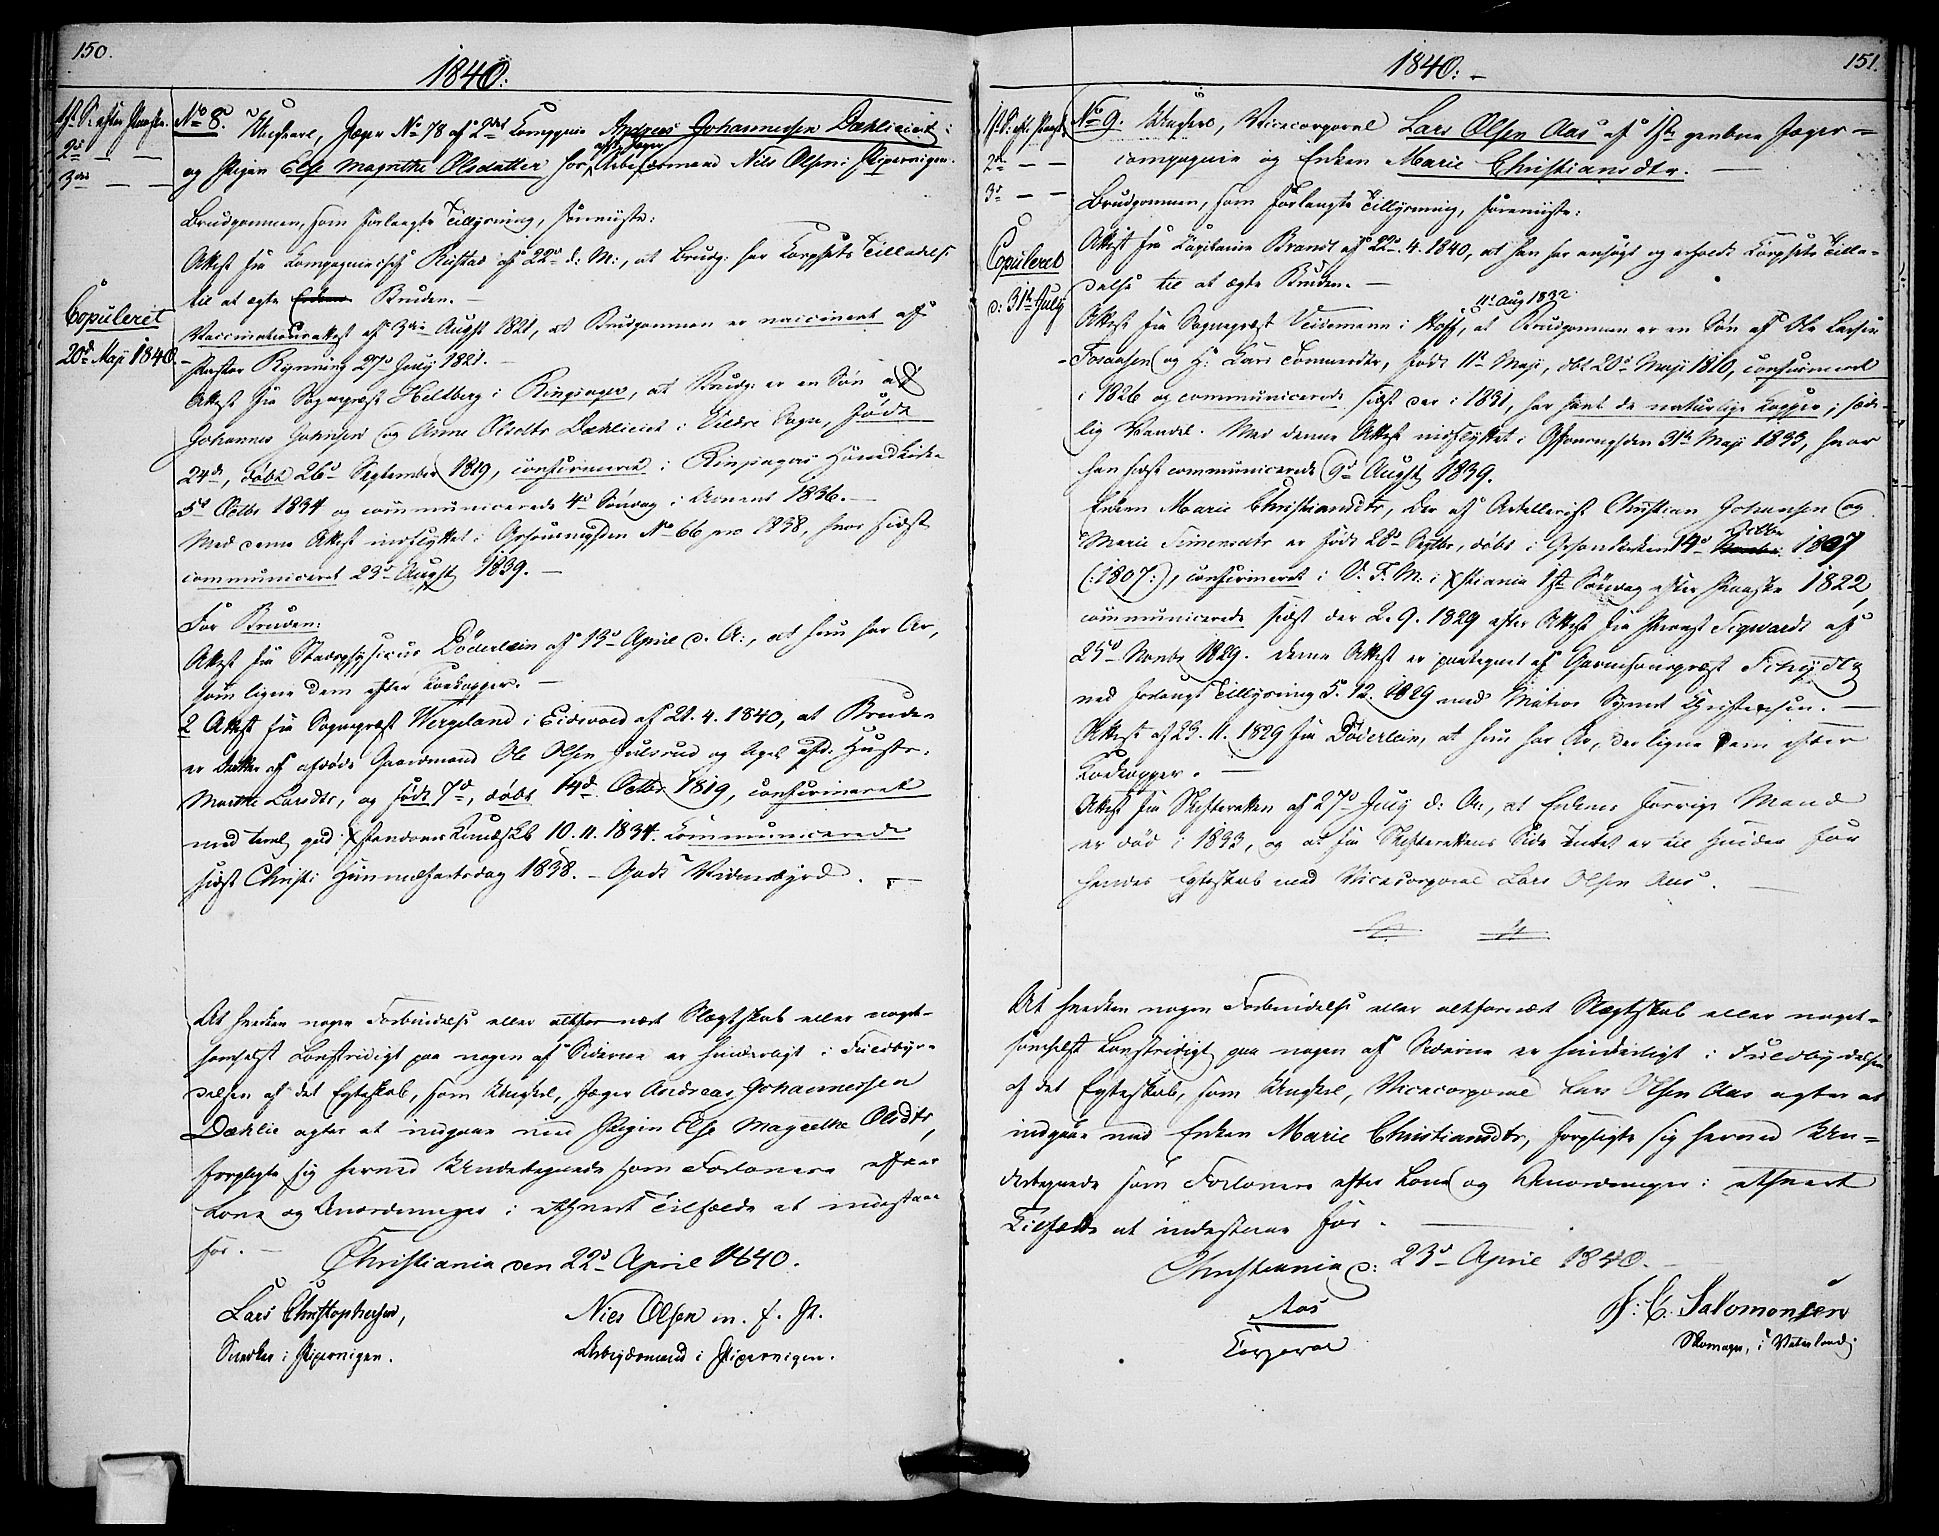 150.
1840.
1ste S. efter Paaske.
2den — —
3die — —
No 8. Ungkarl, Jæger No 78 af 2det Compagnie Andreas Johannessen Dæhlieiet
og Pigen Else Magrethe Olsdatter hos Arbeidsmand Nils Olsen i Pipervigen.
Brudgommen, som forlangte Tillysning, foreviste:
Attest fra Compagniechef Rustad af 22de d: M:, at Brudg: har Corpsets Tilladelse
til at ægte Enken Bruden. —
Copuleret
20de Maji 1840.
Vaccinationsattest af 3die August 1821, at Brudgommen er vaccineret af
Pastor Rynning 27de Juli 1821. —
Attest fra Sognepræst Heltberg i Ringsager, at Brudg: er en Søn af
Johannes Johnsen og Anne Olsdtr Dæhlieiet i Veldre Sogn, født
24de, døbt 26de September 1819, confirmeret i Ringsagers Hovedkirke
5te Octbr 1834 og communicerede 4de Søndag i Advent 1836. —
Med denne Attest indflyttet i Garnisonsmgheden No 66 pro 1838, hvor sidst
communiceret 23de August 1839. —
For Bruden:
Attest fra Stadsphysicus Döderlein af 13de April d. A:, at hun har Ar,
som ligne dem efter Kokopper. —
2 Attest fra Sognepræst Wergeland i Eidsvold af 21. 4. 1840, at Bruden
er Datter af afdøde Gaardmand Ole Olsen Julsrud og Hustr.
Marthe Larsdtr, og født 7de, døbt 14de Octbr 1819, confirmeret
med temel. god Xstendoms Kundskb 10. 11. 1834. Communicerede
sidst Christi Himmelfartsdag 1838. — Godt Vidnesbyrd. —
At hverken nogen Forbindelse eller altfor nært Slægtskab eller noget-
somhelst Lovstridigt paa nogen af Siderne er hinderligt i Fuldbyr-
delsen af det Egteskab, som Ungkarl, Jæger Andreas Johannessen
Dæhlie agter at indgaae med Pigen Else Magrethe Olsdtr,
forpligte sig herved Undertegnede som Forlovere efter
Love og Anordninger i ethvert Tilfælde at indestaae
for. —
Christiania den 22de April 1840.
Lars Christophersen,
Snedker i Pipervigen.
Niels Olsen m. f. P.
Arbeidsmand i Pipervigen.
151.
1840. —
1ste S. eft. Paaske
2den — —
3de — —
No 9. Ungkarl, Vicecorporal Lars Olsen Aas af 1ste genboe Jæger-
compagnie og Enken Marie Christiansdtr. —
Brudgommen, som forlangte Tillysning, foreviste:
Attest fra Capitaine Brandt af 22de. 4. 1840, at han har ansøgt og erholdt Corpsets Tilla-
delse til at ægte Bruden. —
Copuleret
d: 31te July
11te Aug 1832
Attest fra Sognepræst Veisemann i Hoff, at Brudgommen er en Søn af Ole Larsen
Fossaasen og H: Kari Tomundtr, født 11te Maji, døbt 20de Maji 1810, confirmeret
i 1826 og communicerede sidst der i 1831, har havt de naturlige Kopper; sæde-
lig Vandel. Med denne Attest indflyttet i Gsonsmgheden 31te Maji 1833, hvor
han sidst communicerede 9de August 1839.
Enken Marie Christiansdtr, Dtr af Artellerist Christian Johansen og
Marie Simensdtr er født 28de Septbr, døbt i Gsonskirken 14de Novbr Octbr 1807
(:1807:), confirmeret i V. F. M. i Xstiania 1ste Søndag efter Paaske 1822,
communicerede sidst der 2. 9. 1829 efter Attest fra Provst Sigwardt af
25de Novbr 1829. Denne Attest er paategnet af Garnisonspræst Schydtz
ved forlangt Tillysning 5. 12. 1829 med Matros Svend Christensen. —
Attest af 23. 11. 1829 fra Döderlein, at hun har Ar, der ligne dem efter
Kokopper. —
Attest fra Skifteretten af 27de July d: A:, at Enkens forrige Mand
er død i 1833, og at fra Skifterettens Side Intet er til Hinder for
hendes Egteskab med Vicecorporal Lars Olsen Aas. —
At hverken nogen Forbindelse eller altfornært Slægtskab eller noget-
somhelst Lovstridigt paa nogen af Siderne er hinderligt i Fuldbyrdelsen
af det Egteskab, som Ungkarl, Vicecorporal Lars Olsen Aas agter at
indgaae med Enken Marie Christiansdtr, forpligte sig herved Un-
dertegnede som Forlovere efter Love og Anordninger i ethvert
Tilfælde at indestaae for. —
Christiania d: 23de April 1840. —
Aas
Corporal
J: C. Salomonsen
Skomager, i Vaterland